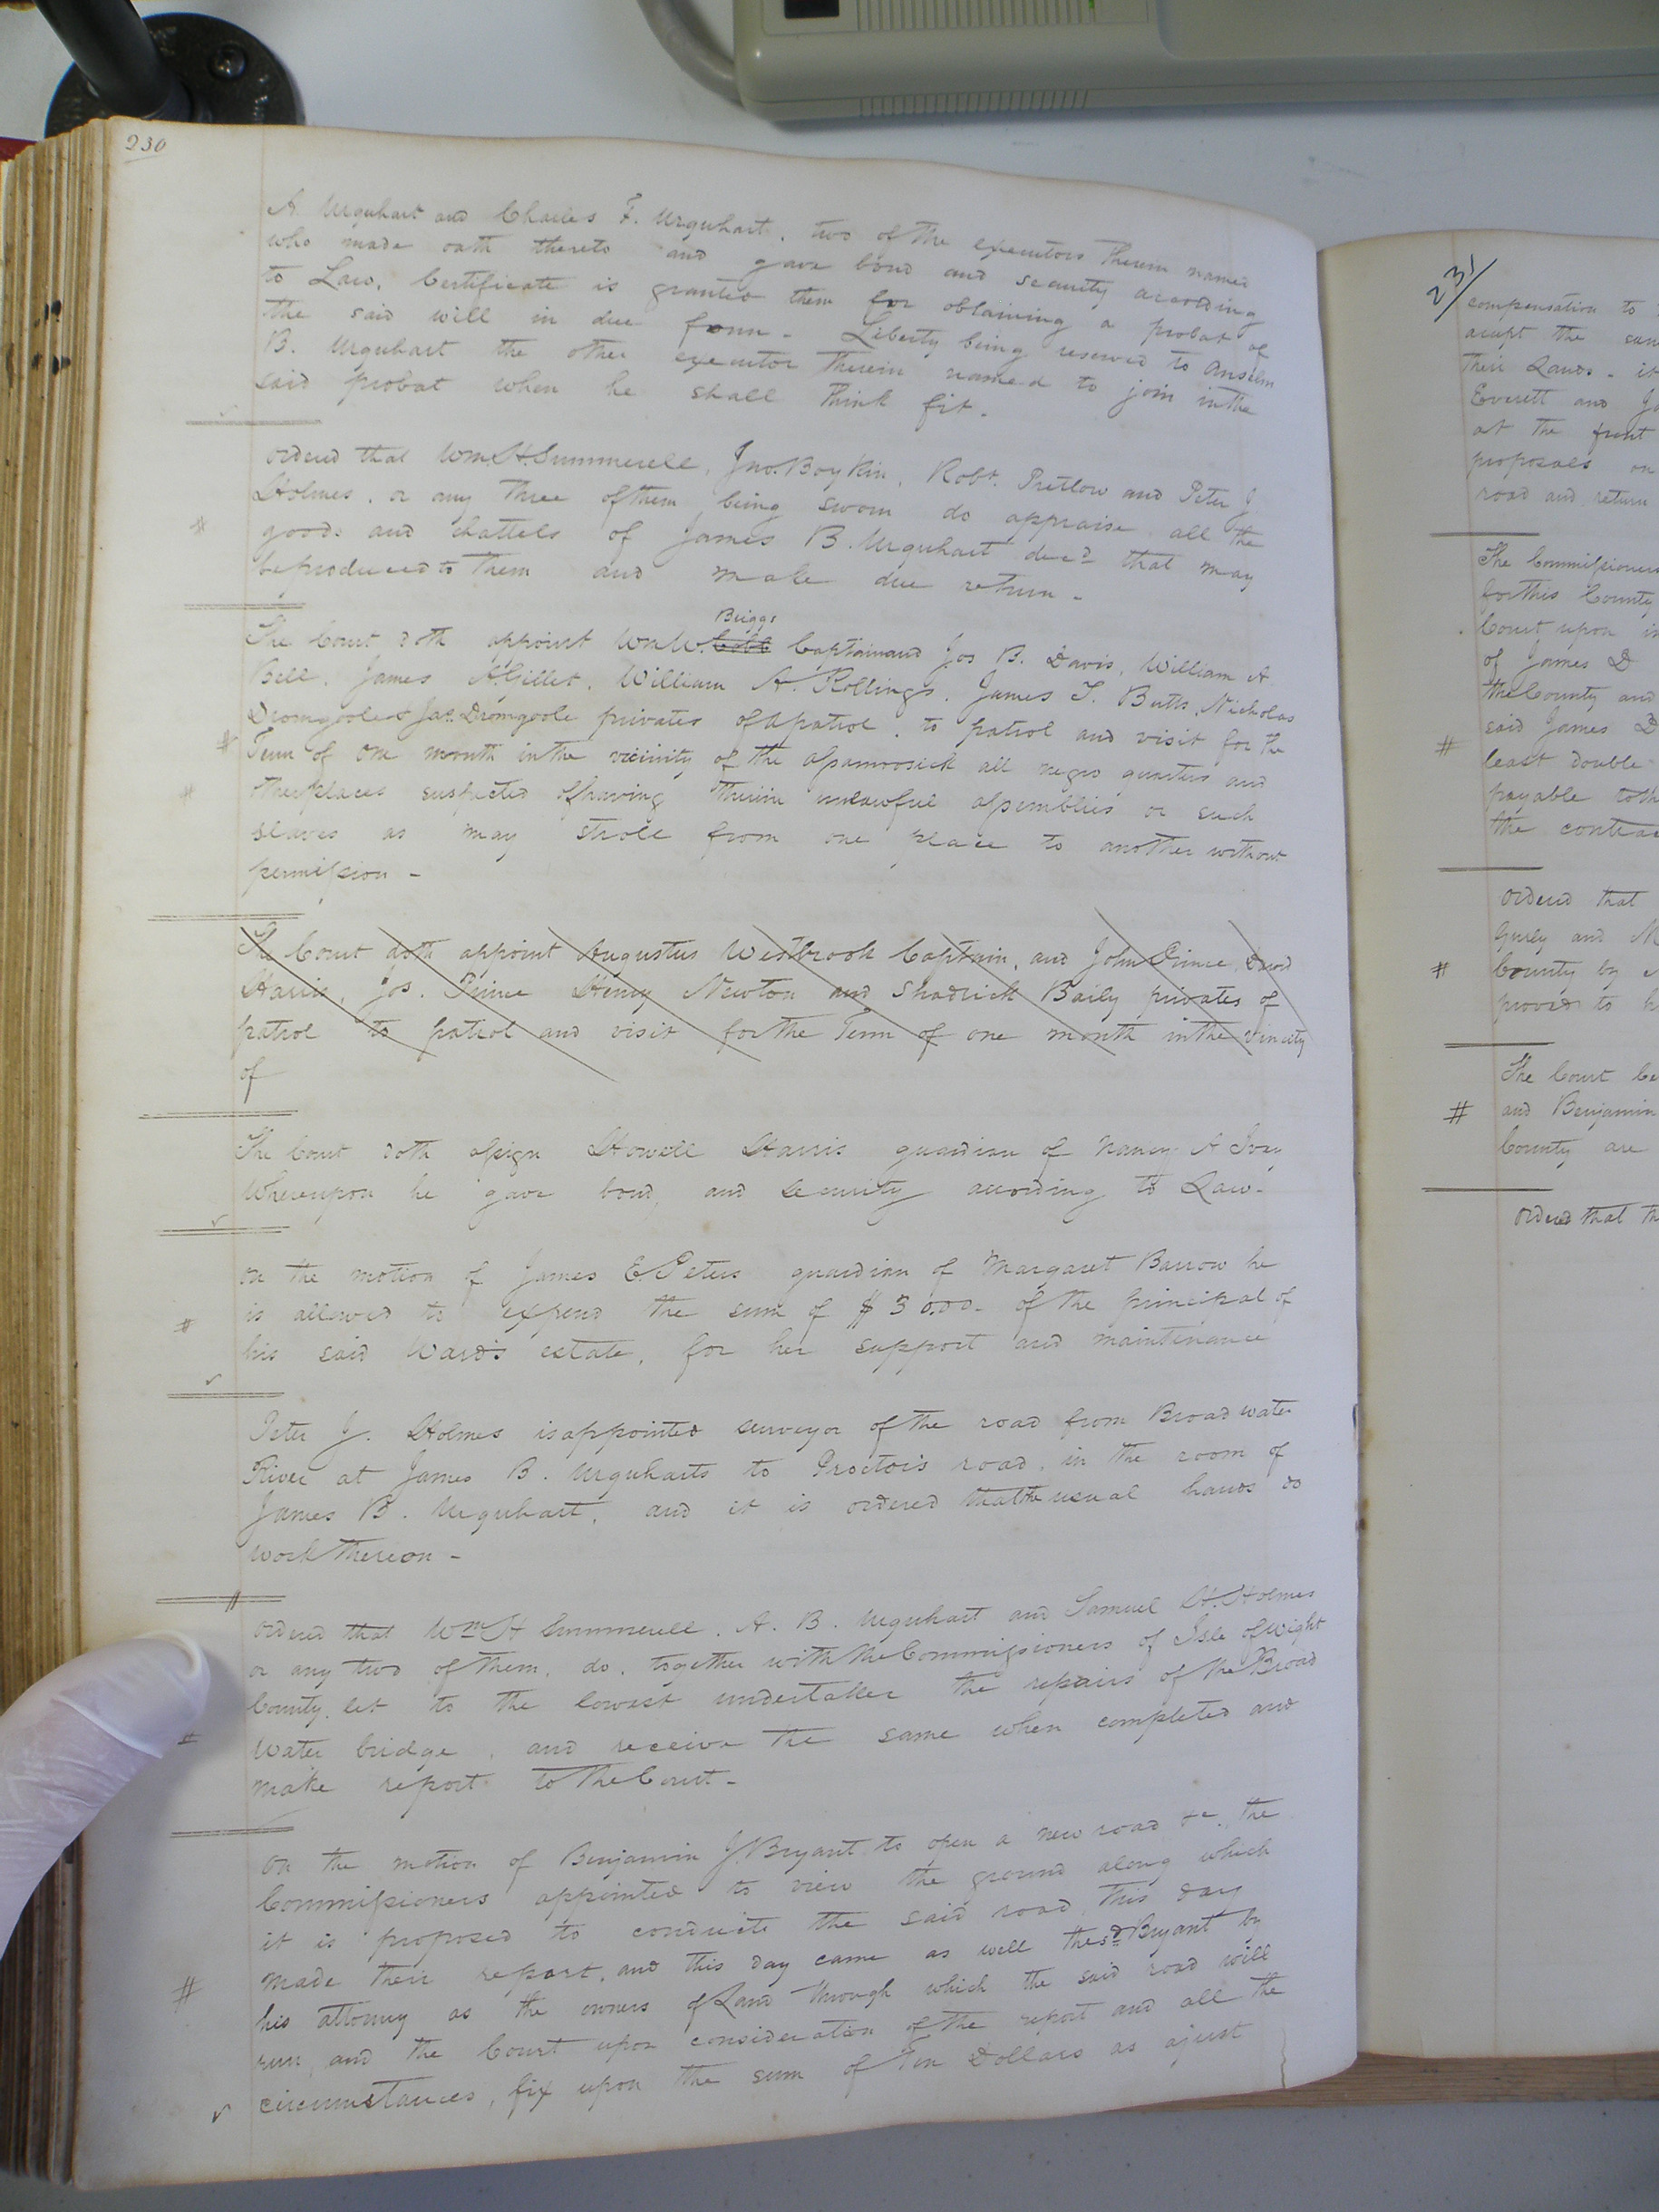 230
A Urquhart and Charles F. Urquhart, two of the executors therein named
who made oath thereto and gave bond and security according
to Law, Certificate is granted them for obtaining a probat of
the said will in due form - Liberty being reserved to Anselm
B. Urquhart the other executor therein named to join in the
said probat when he shall think fit.
Ordered that Wm. H. Summerell, Jno. Boykin, Robt. Pretlow and Peter J.
Holmes, or any three of them being sworn do appraise all the
goods and chattels of James B. Urquhart decd that may
be produced to them and make due return.
Briggs
The Court doth appoint Wm W. Captain and Jos B. Davis, William A
Bell, James A. Gillet, William A. Rollings, James T. Butts, Nicholas
Dromgoole & Jas. Dromgoole privates of a patrol, to patrol and visit for the
Term of one month in the vicinity of the Assamoosick all negro quarters and
other places suspected of having therein unlawful assemblies or such
slaves as may strole from one place to another without
permission -
The Court doth appoint Augustus Westbrook Captain, and John Prince, David
Harris, Jos. Prince Henry Newton and Shadrick Baily privates of
patrol to patrol and visit for the Term of one month in the vincity
of
The Court doth assign Howell Harris guardian of Nancy A Ivey
Whereupon he gave bond, and security according to Law -
On the motion of James E. Peters guardian of Margaret Barrow he
is allowed to expend the sum of $30.00 - of the principal of
his said Ward's estate, for her support and maintinance
Peter J. Holmes is appointed surveyor of the road from Broad water
River at James B. Urquharts to Proctor's road, in the room of
James B. Urquhart, and it is ordered that the usual hands do
work thereon -
Ordered that Wm H Summerell, A. B. Urquhart and Samuel H. Holmes
or any two of them, do, together with the Commissioners of Isle of Wight
County, let to the lowest undertaker the repairs of the Broad
Water bridge, and receive the same when completed and
make report to the Court -
On the motion of Benjamin J. Bryant to open a new road &c., the
Commissioners appointed to view the ground along which
it is proposed to conduct the said road, this day
made their report, and this day came as well the sd Bryant by
his attorney as the owners of Land through which the said road will
run, and the Court upon consideration of the report and all the
circumstances, fix upon the sum of Ten Dollars as a just
231
compensation to
accept the
their Lands - it
Everett and
at the front
proposals on
road and return
The Commissioners
for this County
Court upon
of James D
the County and
said James D
least double
payable to
the
Ordered that
Gurley and
County by
proved to
The Court
and Benjamin
County are
Ordered that